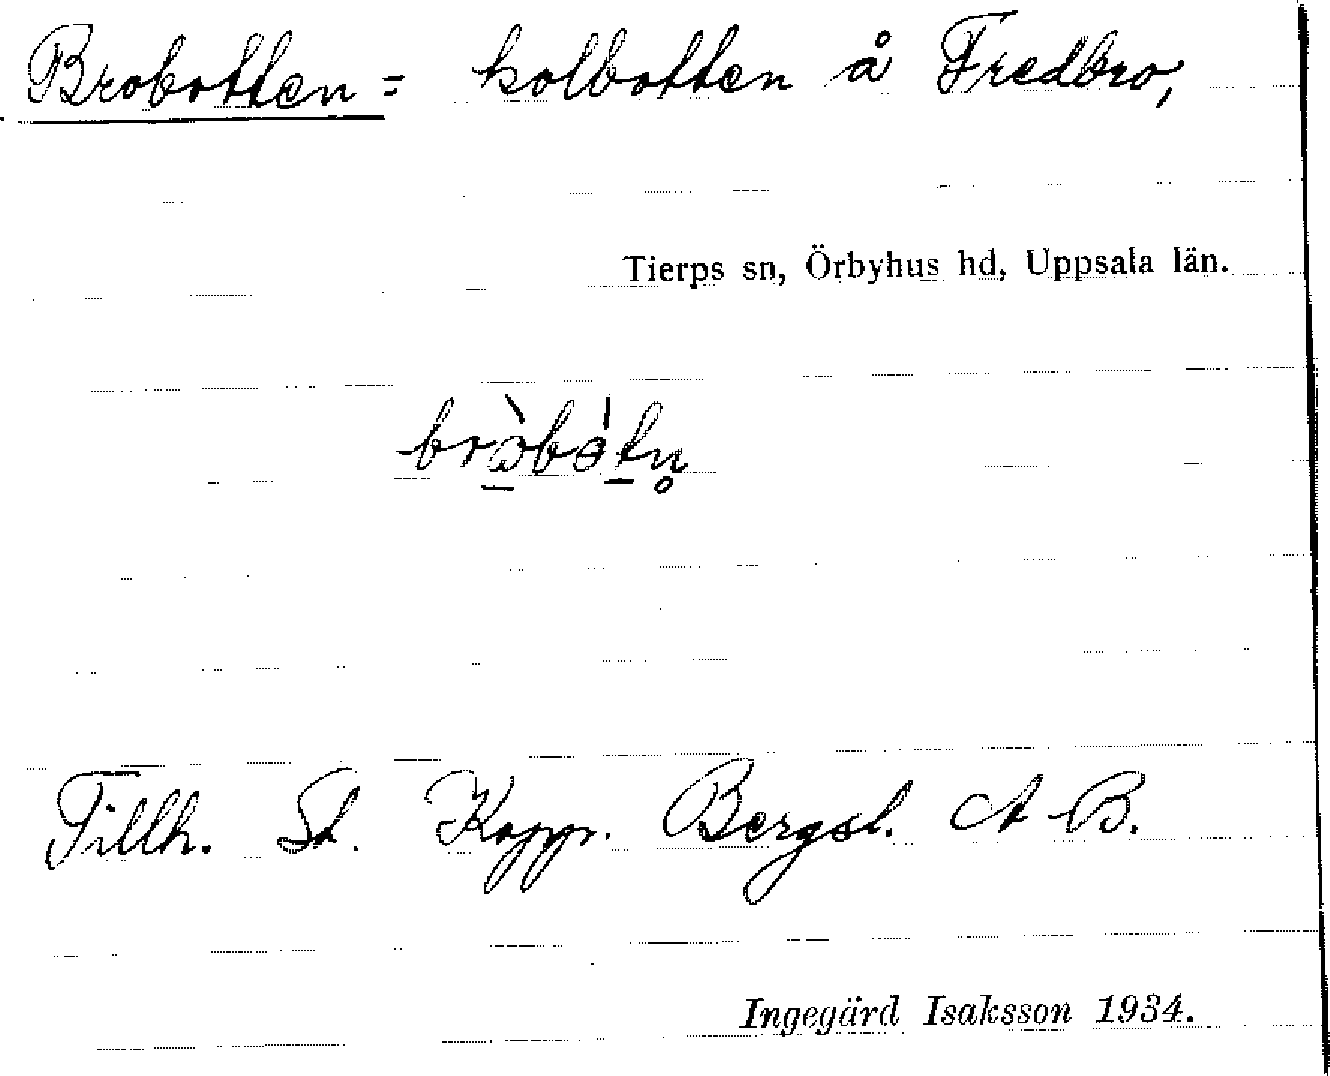 Brobotten = kolbotten å Fredbro,
Tierps sn, Örbyhus hd, Uppsala län.
Tillh. St. Koppr. Bergsl. A B.
Ingegärd Isaksson 1934.